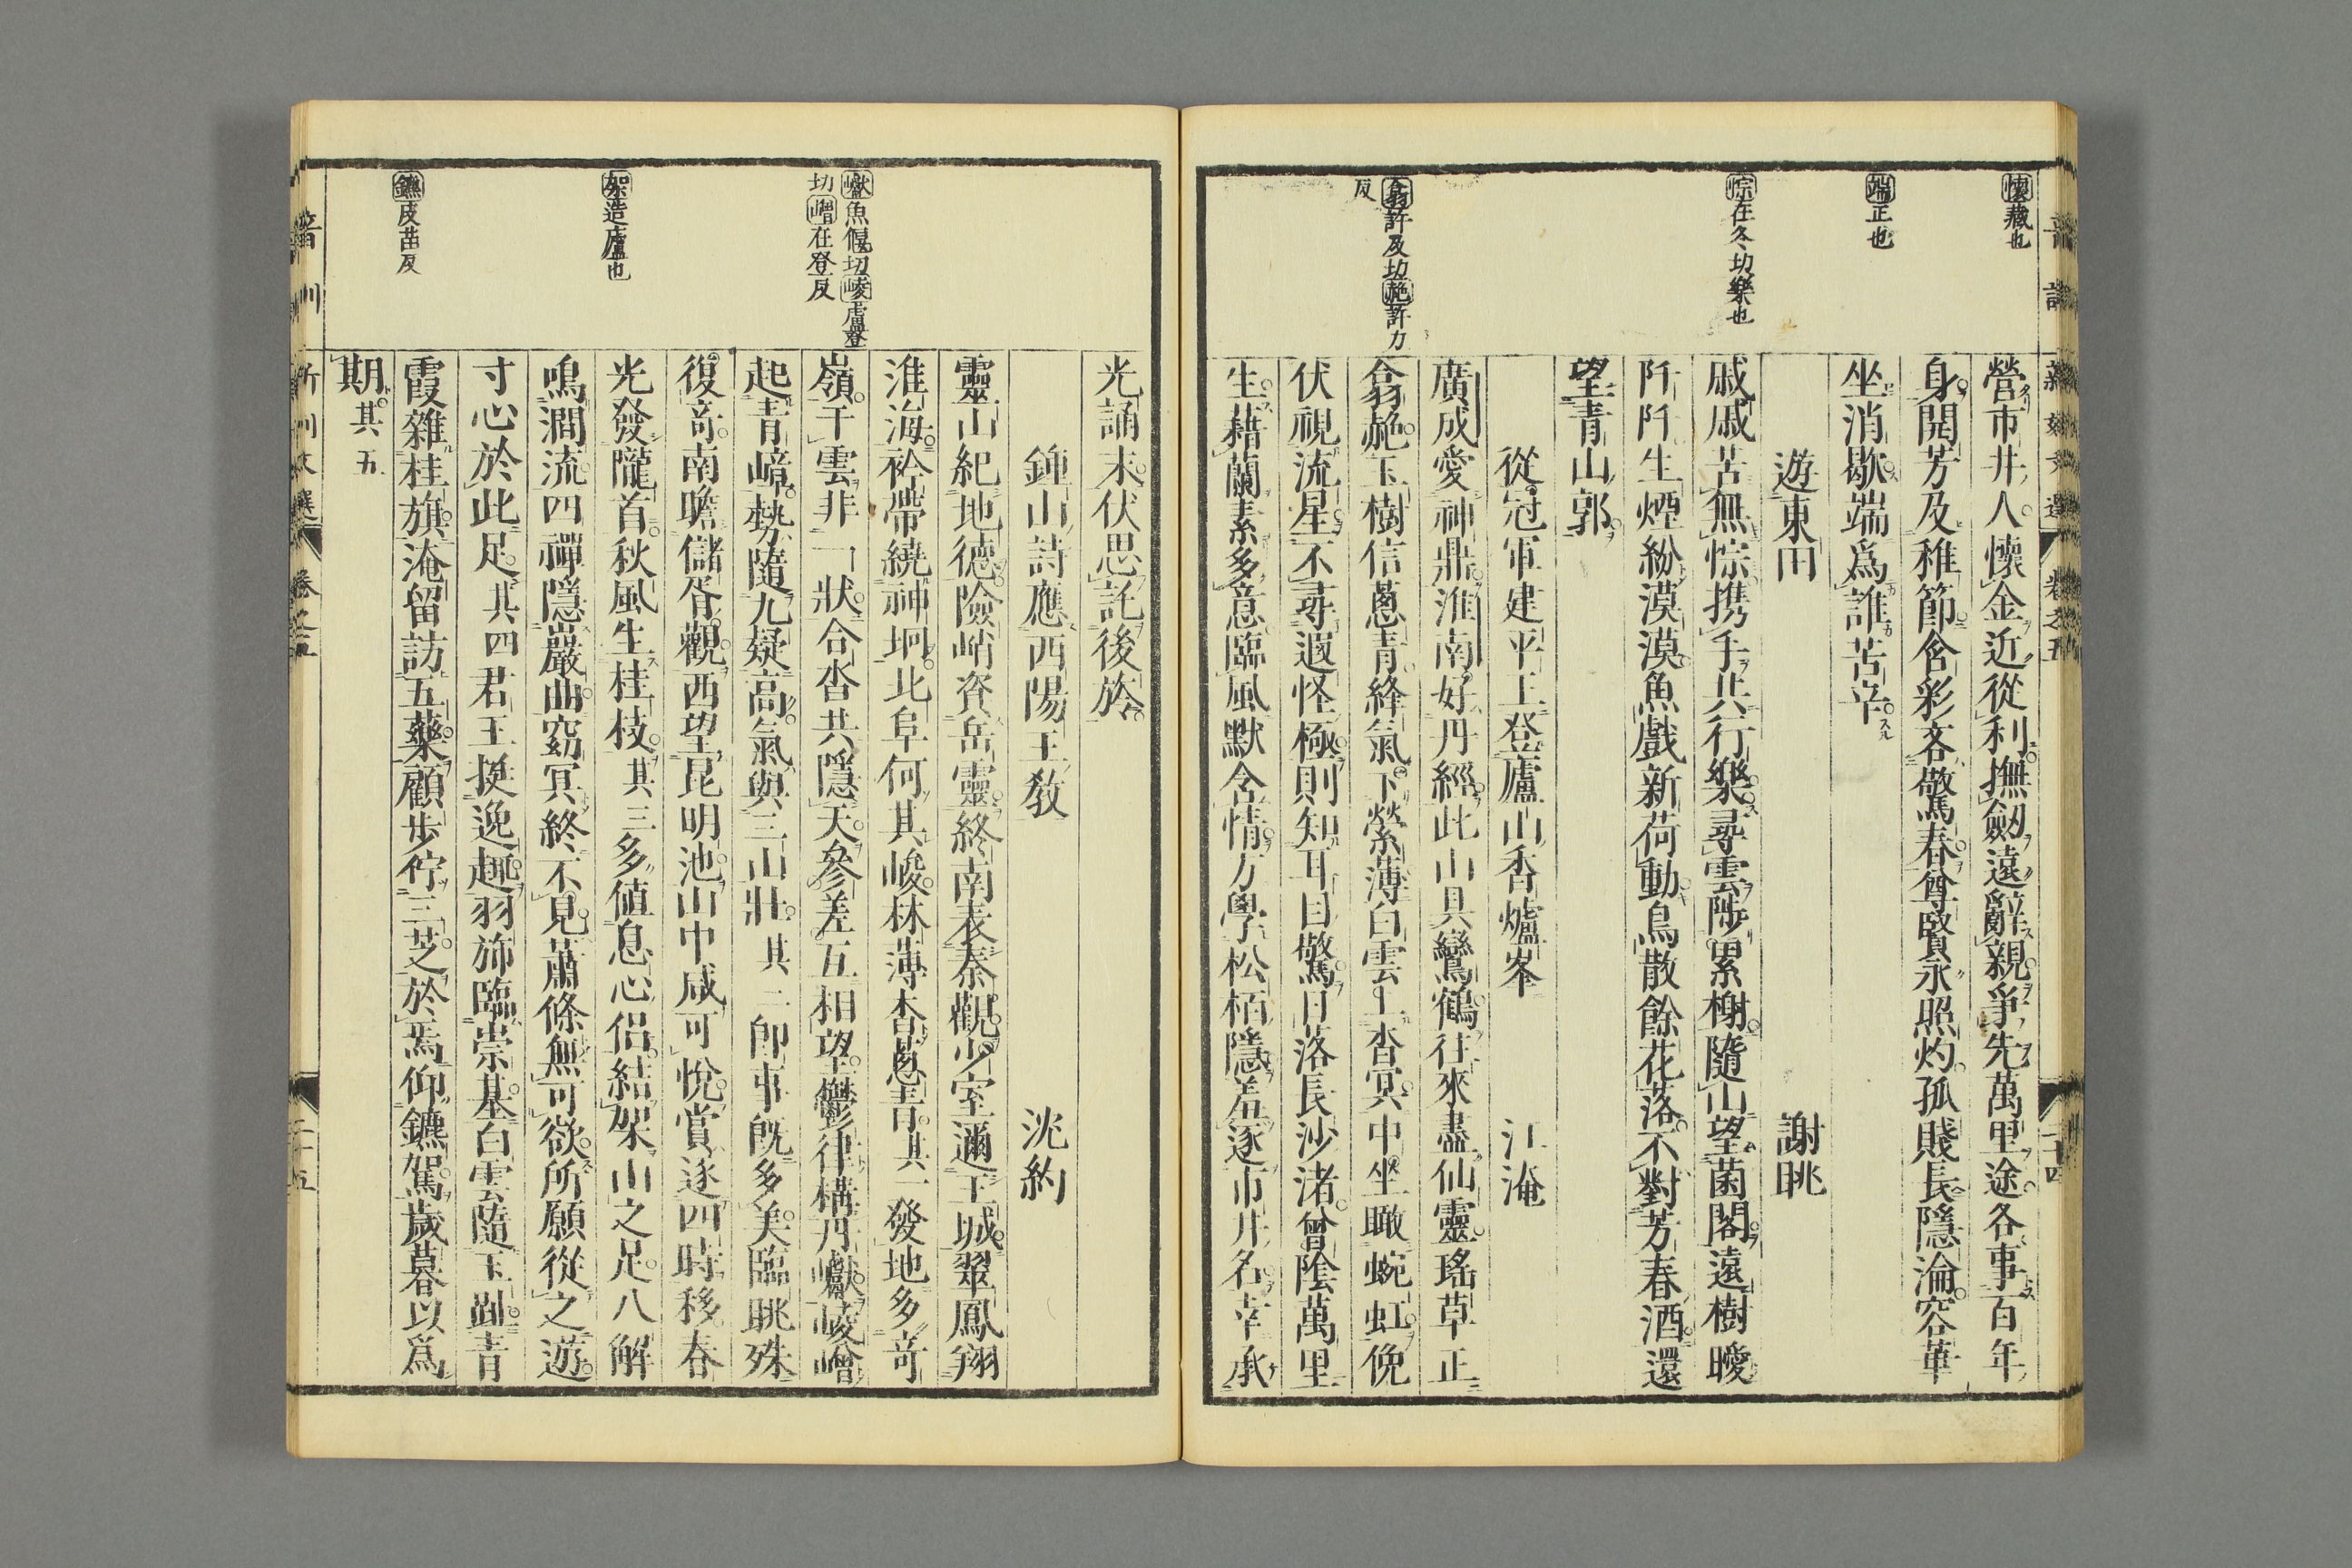 懷藏也
端正也
悰在冬切樂也
翕許及切赩許力
反
營市井人懷金近從利撫劒遠辭親爭先萬里途各事百年
身開芳及稚節含彩吝驚春尊賢永照灼孤賤長隱淪容華
坐消歇端爲誰苦辛
遊東田 謝眺
戚戚苦無悰携手共行樂尋雲陟累榭隨山望菌閣遠樹曖
阡阡生煙紛漠漠魚戲新荷動鳥散餘花落不對芳春酒還
望青山郭
從冠軍建平王登廬山香爐峯 江淹
廣成愛神鼎淮南好丹經此山具鸞鶴往來盡仙靈瑤草正
翕赩玉樹信蔥青絳氣下縈薄白雲上杳冥中坐瞰蜿虹俛
伏視流星不尋遐怪極則知耳目驚日落長沙渚曾陰萬里
生藉蘭素多意臨風默含情方學松栢隱羞逐市井名幸承
光誦末伏思託後旍
鍾山詩應西陽王敎 沈約
靈山紀地德險峭資岳靈終南表秦觀少室邇王城翠鳳翔
淮海衿帶繞神坰北阜何其峻林薄杳蔥青其一發地多奇
嶺干雲非一狀合沓共隱天參差互相望鬱律構丹巘崚嶒
起青嶂勢隨九疑高氣與三山壯其二卽事既多美臨眺殊
復奇南瞻儲胥觀西望昆明池山中咸可悅賞逐四時移春
光發隴首秋風生桂枝其三多値息心侶結架山之足八解
鳴澗流四禪隱巖曲窈冥終不見蕭條無可欲所願從之遊
寸心於此足其四君王挺逸趣羽斾臨崇基白雲隨玉趾青
霞雜桂旗淹留訪五藥顧步佇三芝於焉仰鑣駕歲暮以爲
期其五
巘魚偃切崚盧登
切嶒在登反
架造廬也
鑣皮苗反